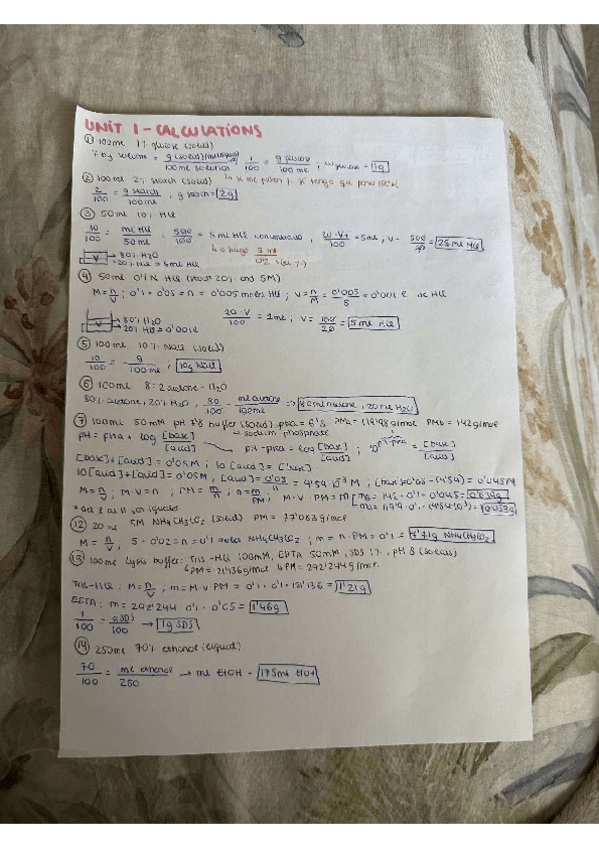 UNIT 1 - CALCULATIONS
① 100ml 1% glucose (solid)
% by volume = g (solid) / 100 ml solution ; 1/100 = g glucose / 100 ml ; g glucose = 1g
② 100ml 2% starch (solid)
2/100 = g starch / 100 ml , g starch = 2g
③ 50ml 10% HCl
10/100 = ml HCl / 50 ml ; 500/100 = 5 ml HCl , 20 · V / 100 = 5 ml , V = 500/20 = 25 ml HCl
80% H2O
20% HCl = 5ml HCl
④ 50ml 0'1 N HCl (stock 20% and 5M)
M = n/V ; 0'1 · 0'05 = n = 0'005 moles HCl ; V = n/M = 0'005/5 = 0'001 l HCl
80% H2O
20% HCl = 0'001 l
20 · V / 100 = 1 ml ; V = 100/20 = 5 ml HCl
⑤ 100ml 10% NaCl (solid)
10/100 = g/100 ml , 10g NaCl
⑥ 100ml 8:2 acetone - H2O
80% acetone, 20% H2O , 80/100 = ml acetone / 100ml => 80 ml acetone, 20 ml H2O
⑦ 100ml 50mM pH 7'8 buffer (solid) pKa = 6'8 PMa = 119'98 g/mol PMb = 142 g/mol
sodium phosphate
pH = pKa + log [base]/[acid] pH - pKa = log [base]/[acid] ; 10^(pH-pKa) = [base]/[acid]
[base] + [acid] = 0'05 M ; 10 [acid] = [base]
10 [acid] + [acid] = 0'05M , [acid] = 0'05/11 = 4'54 · 10⁻³ M ;
M = n/V ; M · V = n ; PM = m/n ; n = m/PM ; M · V · PM = m
⑫ 20 ml 5M NH4CH3CO2 (solid) PM = 77'083 g/mol
M = n/V , 5 · 0'02 = n = 0'1 moles NH4CH3CO2 ; m = n · PM = 0'1 = 7'71g NH4CH3CO2
⑬ 100ml lysis buffer: Tris-HCl 100mM, EDTA 50mM, SDS 1%, pH 8 (solids)
PM = 121'136 g/mol PM = 292'244 g/mol
Tris-HCl : M = n/V ; m = M · V · PM = 0'1 · 0'1 · 121'136 = 1'21g
EDTA : m = 292'244 · 0'1 · 0'05 = 1'46g
1/100 = g SDS / 100 → 1g SDS
⑭ 250ml 70% ethanol (liquid)
70/100 = ml ethanol / 250 → ml EtOH = 175ml EtOH